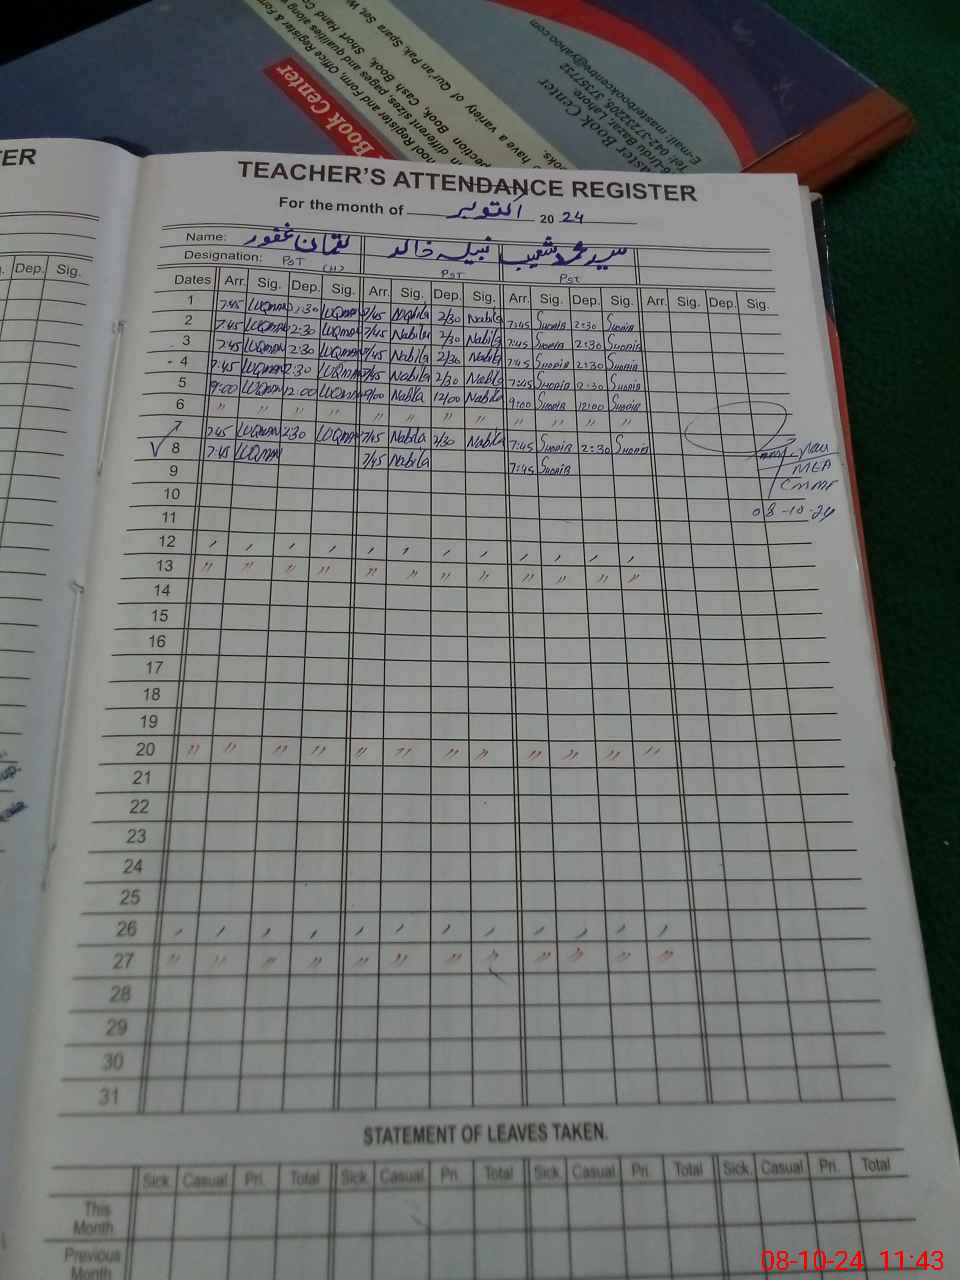 Book Center
School Register and Form, Office Register & Form
in different sizes, pages and qualities along
Book, Cash Book, Short Hand
have a variety of Qur'an Pak, Spara Set,
Master Book Center
Urdu Bazar, Lahore
Tel: 042-37232205, 37357732
E-mail: masterbookcentre@yahoo.com
TER
Dep. Sig.
TEACHER'S ATTENDANCE REGISTER
For the month of اکتوبر 20 24
Name: لقمان غفور نبیلہ خالد سید محمد شعیب
Designation: PST PST PST
Dates Arr. Sig. Dep. Sig. Arr. Sig. Dep. Sig. Arr. Sig. Dep. Sig. Arr. Sig. Dep. Sig.
1 7:45 LUQMAN 2:30 LUQMAN 7/45 Nabila 2/30 Nabila 7:45 SHOAIB 2:30 SHOAIB
2 7:45 LUQMAN 2:30 LUQMAN 7/45 Nabila 2/30 Nabila 7:45 SHOAIB 2:30 SHOAIB
3 7:45 LUQMAN 2:30 LUQMAN 7/45 Nabila 2/30 Nabila 7:45 SHOAIB 2:30 SHOAIB
4 7:45 LUQMAN 2:30 LUQMAN 7/45 Nabila 2/30 Nabila 7:45 SHOAIB 2:30 SHOAIB
5 9:00 LUQMAN 12:00 LUQMAN 9/00 Nabila 12/00 Nabila 9:00 SHOAIB 12:00 SHOAIB
6 " " " " " " " " " " " "
7:45 LUQMAN 2:30 LUQMAN 7/45 Nabila 2/30 Nabila 7:45 SHOAIB 2:30 SHOAIB
8 7:45 LUQMAN 7/45 Nabila 7:45 SHOAIB
MEA
08-10-24
9
10
11
12 , , , , , , , , , , , ,
13 " " " " " " " " " " " "
14
15
16
17
18
19
20 " " " " " " " " " " " "
21
22
23
24
25
26 , , , , , , , , , , , ,
27 " " " " " " " " " " " "
28
29
30
31
STATEMENT OF LEAVES TAKEN.
Sick. Casual Pri. Total Sick. Casual Pri. Total Sick. Casual Pri. Total Sick. Casual Pri. Total
This Month
Previous Month
08-10-24 11:43